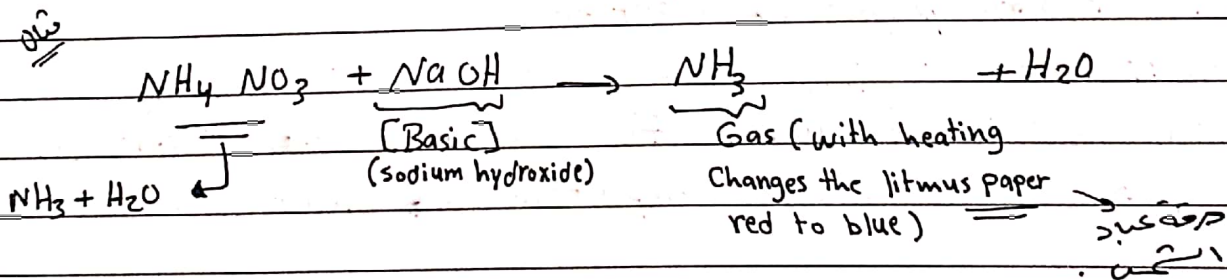 NH4 NO3 + NaOH → NH3 + H2O
[Basic]
(sodium hydroxide)
Gas (with heating
Changes the litmus paper
red to blue)
NH3 + H2O